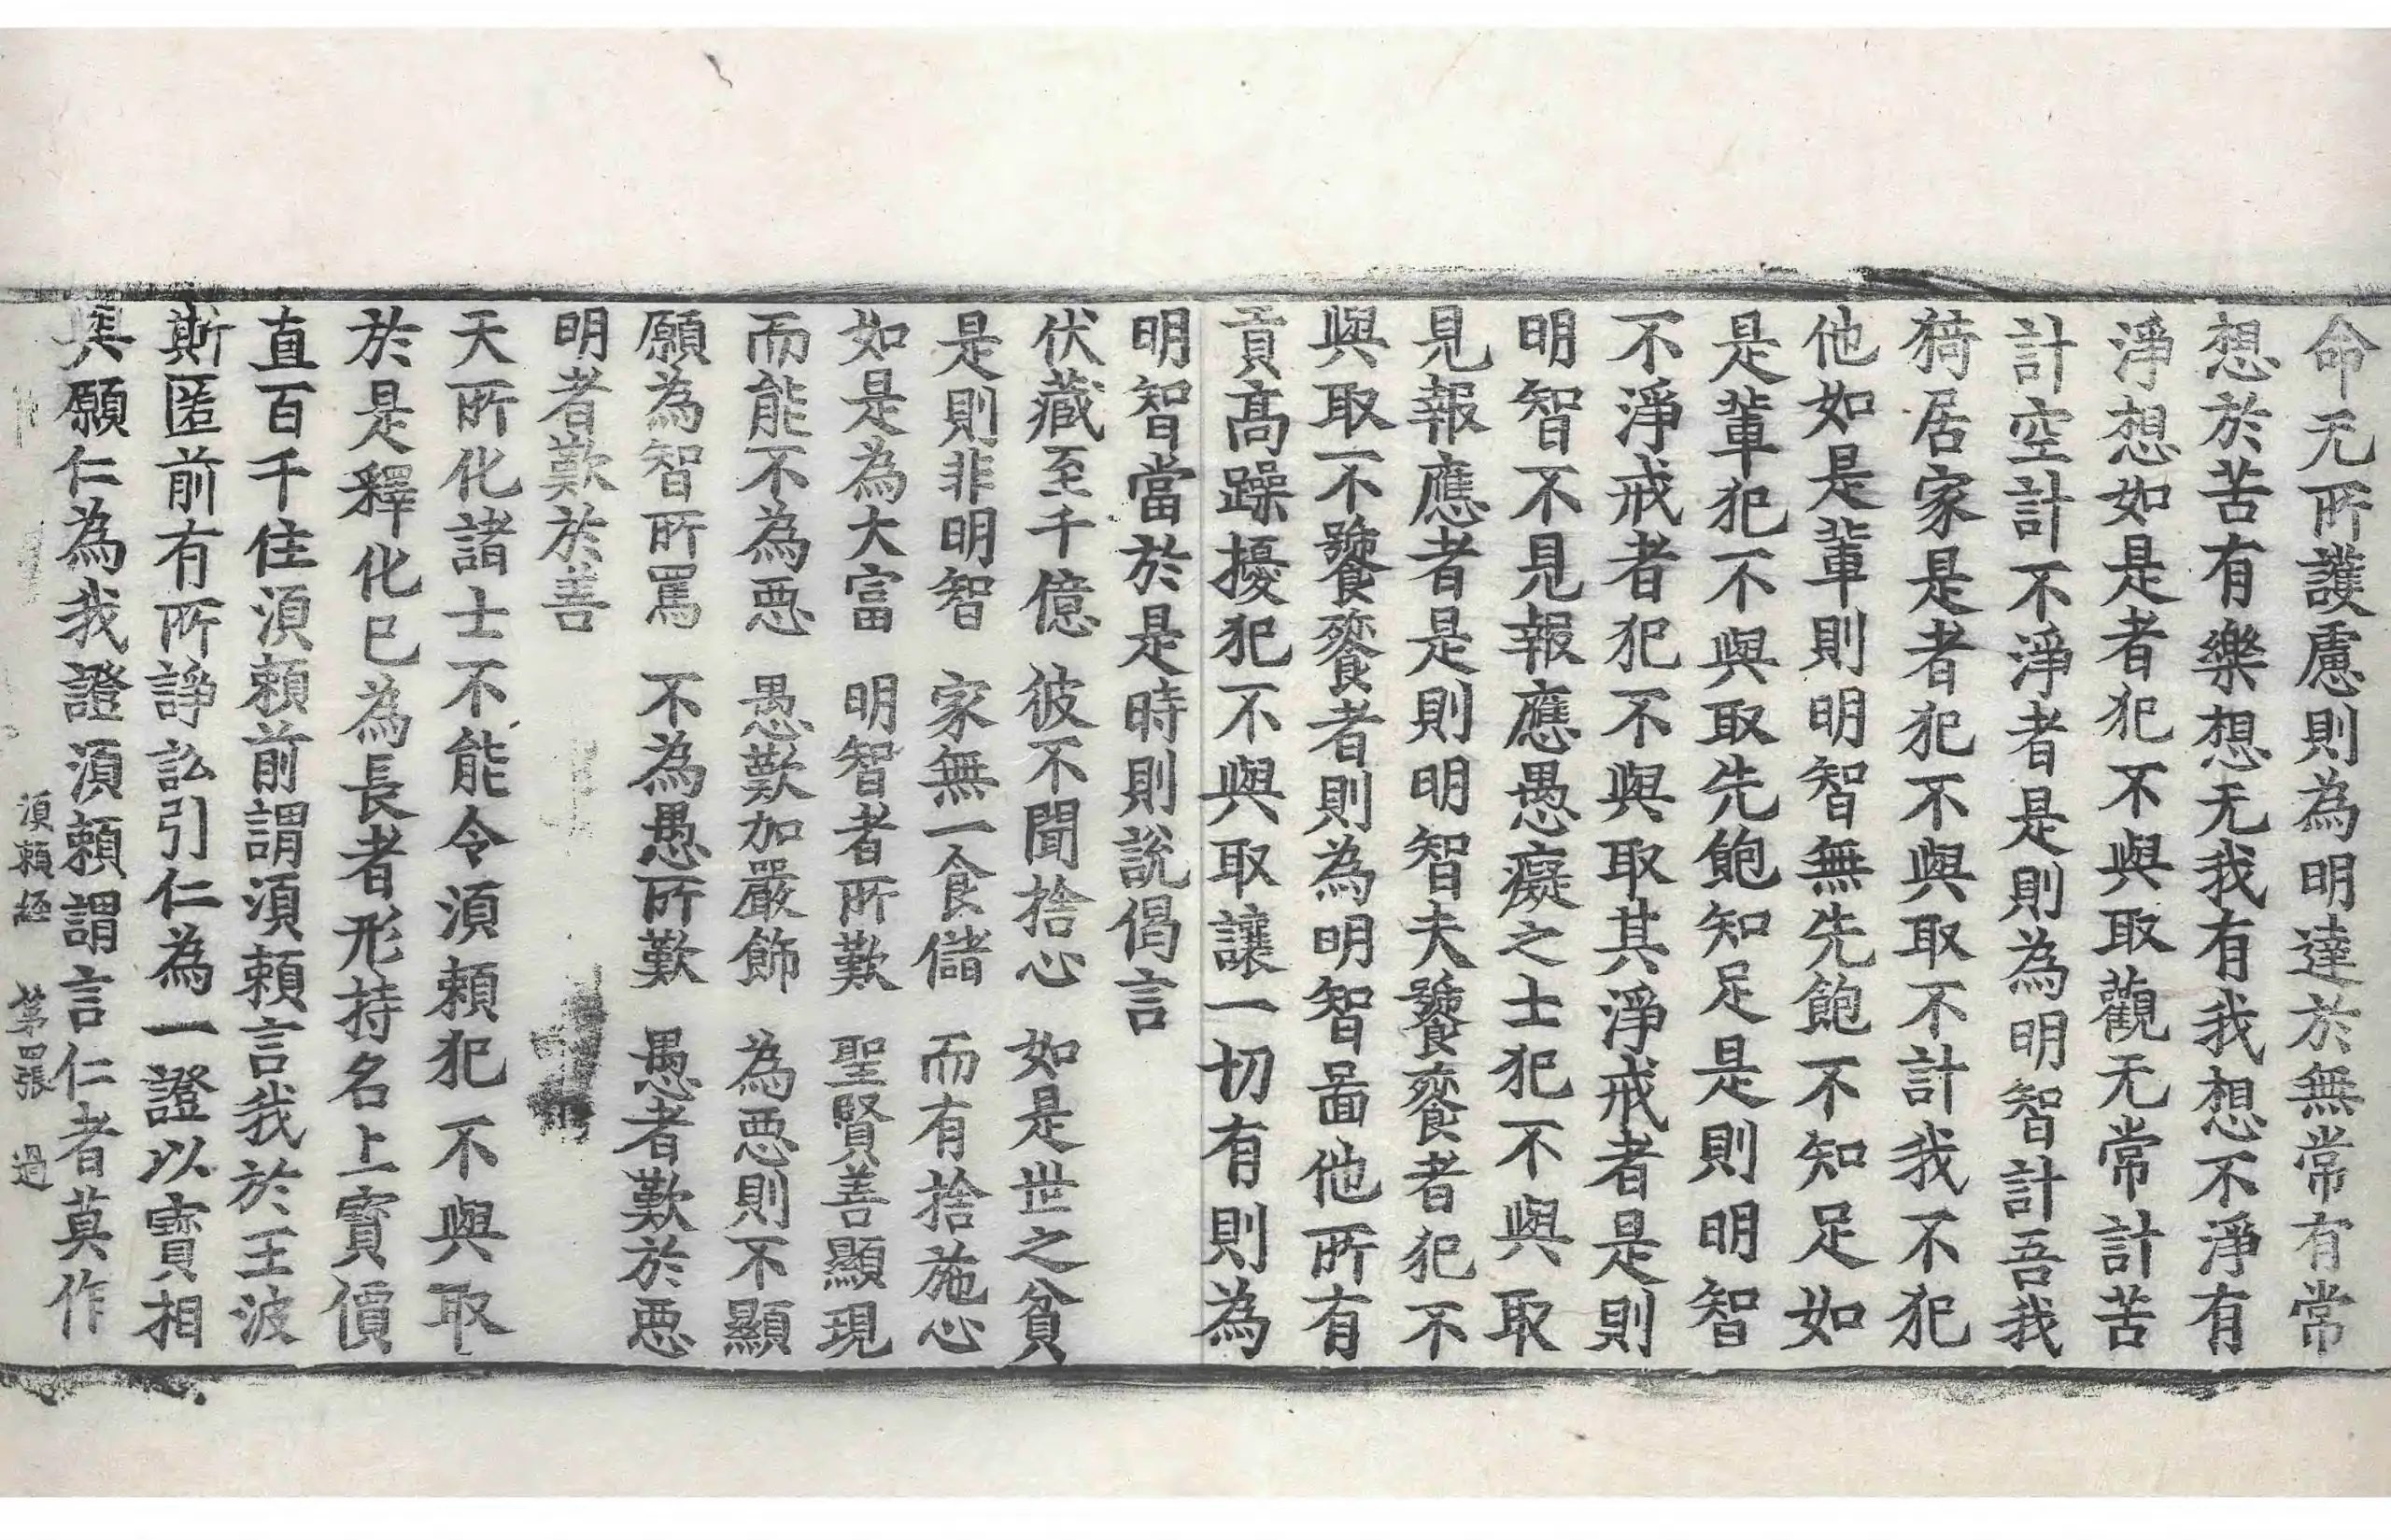 命无所護慮則為明達於無常有常
想於苦有樂想无我有我想不淨有
淨想如是者犯不與取觀无常計苦
計空計不淨者是則為明智計吾我
猗居家是者犯不與取不計我不犯
他如是輩則明智無先飽不知足如
是輩犯不與取先飽知足是則明智
不淨戒者犯不與取其淨戒者是則
明智不見報應愚癡之士犯不與取
見報應者是則明智夫饕餮者犯不
與取不饕餮者則為明智啚他所有
貢高躁擾犯不與取讓一切有則為
明智當於是時則說偈言
伏藏至千億　彼不聞捨心　如是世之貧
是則非明智　家無一食儲　而有捨施心
如是為大富　明智者所歎　聖賢善顯現
而能不為惡　愚歎加嚴飾　為惡則不顯
願為智所罵　不為愚所歎　愚者歎於惡
明者歎於善
天所化諸士不能令須賴犯不與取
於是釋化已為長者形持名上寶價
直百千住須賴前謂須賴言我於王波
斯匿前有所諍訟引仁為一證以寶相
與願仁為我證須賴謂言仁者莫作
須賴經　第四張　過